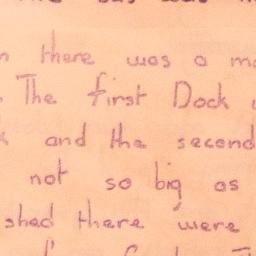 there was a
The first Dock
and the second
not so big as
shed there were